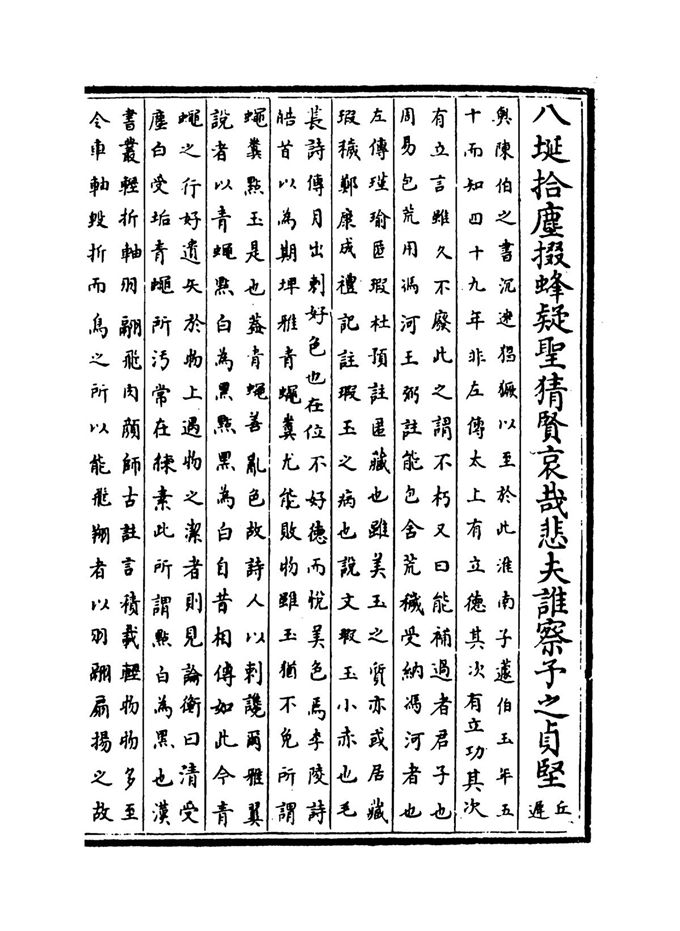 八埏拾塵掇蜂疑聖猜賢哀哉悲夫誰察子之貞堅丘遲
與陳伯之書沉迷猖獗以至於此淮南子蘧伯玉年五
十而知四十九年非左傳太上有立德其次有立功其次
有立言雖久不廢此之謂不朽又曰能補過者君子也
周易包荒用馮河王弼註能包含荒穢受納馮河者也
左傳瑾瑜匿瑕杜預註匿藏也雖美玉之質亦或居藏
瑕穢鄭康成禮記註瑕玉之病也說文瑕玉小赤也毛
萇詩傳月出刺好色也在位不好德而悅美色焉李陵詩
皓首以為期埤雅青蠅糞尤能敗物雖玉猶不免所謂
蠅糞點玉是也蓋青蠅善亂色故詩人以刺讒爾雅翼
說者以青蠅點白為黑點黑為白自昔相傳如此今青
蠅之行好遺矢於物上遇物之潔者則見論衡曰清受
塵白受垢青蠅所汚常在練素此所謂點白為黑也漢
書叢輕折軸羽翮飛肉顏師古註言積載輕物物多至
令車軸毀折而鳥之所以能飛翔者以羽翮扇揚之故